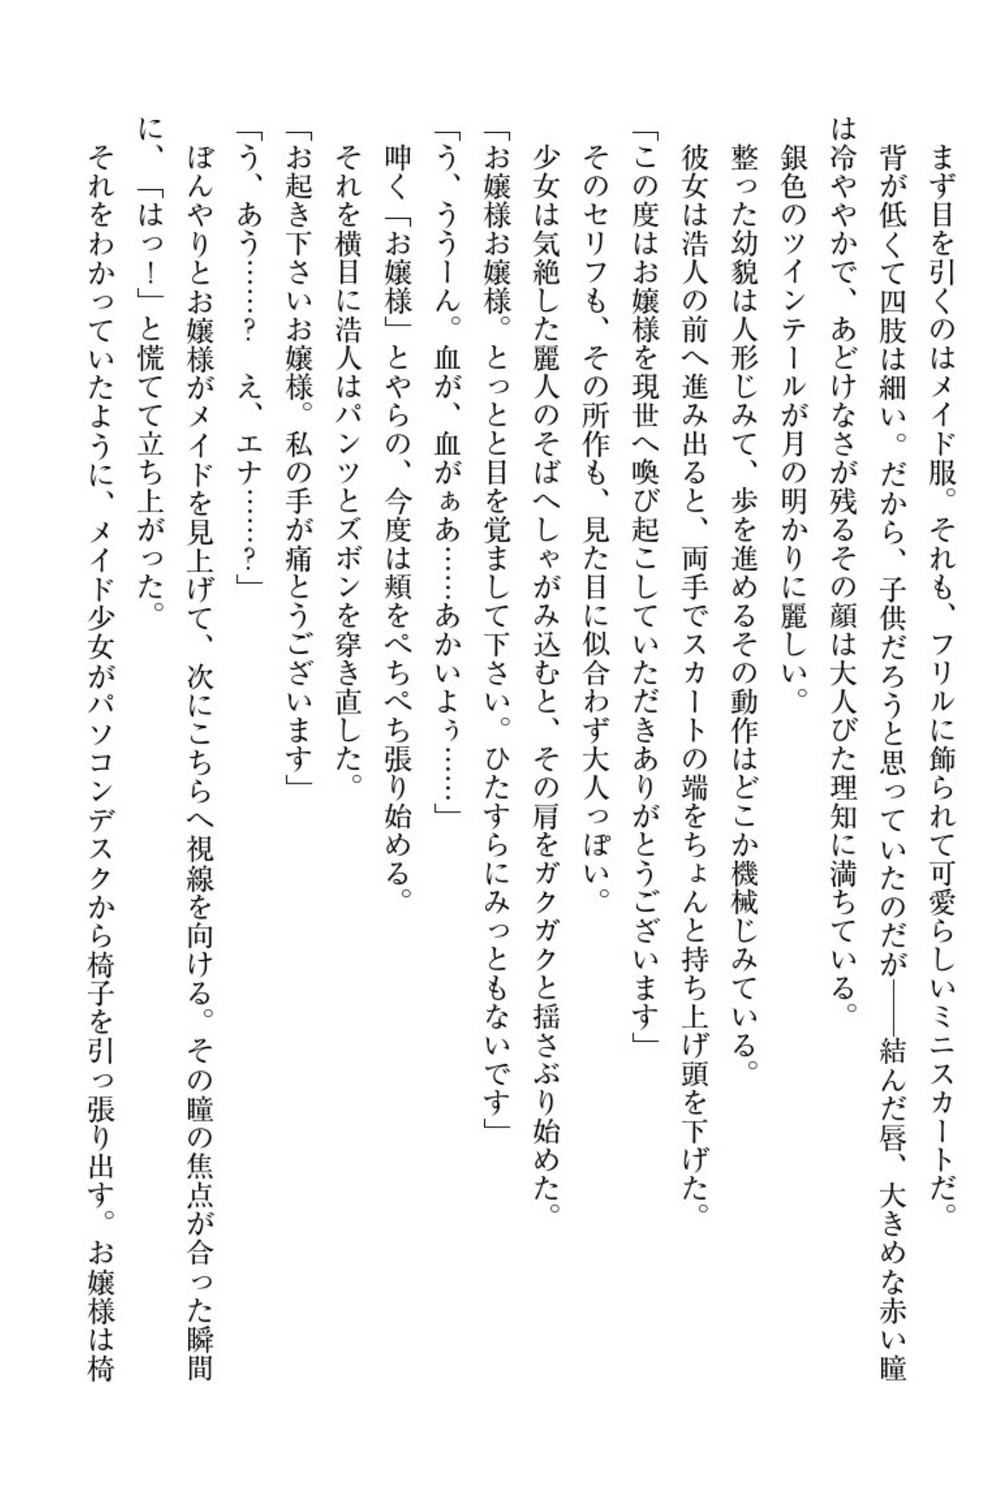 まず目を引くのはメイド服。それも、フリルに飾られて可愛らしいミニスカートだ。
背が低くて四肢は細い。だから、子供だろうと思っていたのだが――結んだ唇、大きめな赤い瞳
は冷ややかで、あどけなさが残るその顔は大人びた理知に満ちている。
銀色のツインテールが月の明かりに麗しい。
整った幼貌は人形じみて、歩を進めるその動作はどこか機械じみている。
彼女は浩人の前へ進み出ると、両手でスカートの端をちょんと持ち上げ頭を下げた。
「この度はお嬢様を現世へ喚び起こしていただきありがとうございます」
そのセリフも、その所作も、見た目に似合わず大人っぽい。
少女は気絶した麗人のそばへしゃがみ込むと、その肩をガクガクと揺さぶり始めた。
「お嬢様お嬢様。とっとと目を覚まして下さい。ひたすらにみっともないです」
「う、ううーん。血が、血がぁあ……あかいよぅ……」
呻く「お嬢様」とやらの、今度は頬をぺちぺち張り始める。
それを横目に浩人はパンツとズボンを穿き直した。
「お起き下さいお嬢様。私の手が痛とうございます」
「う、あう……?　え、エナ……?」
ぼんやりとお嬢様がメイドを見上げて、次にこちらへ視線を向ける。その瞳の焦点が合った瞬間
に、「はっ!」と慌てて立ち上がった。
それをわかっていたように、メイド少女がパソコンデスクから椅子を引っ張り出す。お嬢様は椅